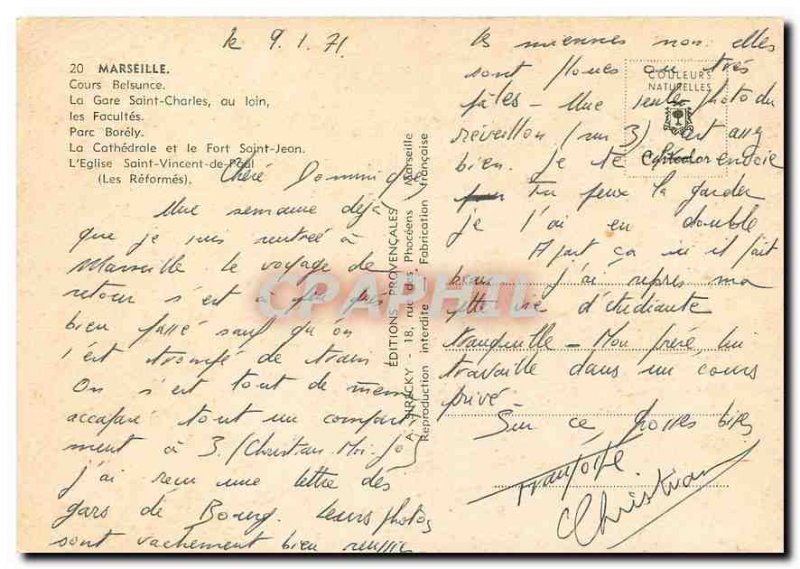 le 9.1.71
20 MARSEILLE.
Cours Belsunce.
La Gare Saint-Charles, au loin,
les Facultés.
Parc Borély.
La Cathédrale et le Fort Saint-Jean.
L'Eglise Saint-Vincent-de-Paul
(Les Réformés).
Chère Dominique
Une semaine déjà
que je suis rentrée à
Marseille le voyage de
retour s'est à peu près
bien passé sauf qu'on
s'est trompé de train
On s'est tout de même
accaparé tout un compart
ment à 3 (Christian-Moi-Jo)
j'ai reçu une lettre des
gars de Bourg. Leurs photos
sont vachement bien réussies
EDITIONS PROVENÇALES
A. SIRICKY - 18, rue des Phocéens Marseille
Reproduction interdite - Fabrication française
COULEURS
NATURELLES
les miennes non elles
sont floues ou très
pâles - Une seule photo du
réveillon (sur 3) est assez
bien. Je te envoie
Tu peux la garder
je l'ai en double
A part ça ici il fait
beau j'ai repris ma
vie d'étudiante
tranquille - Mon frère lui
travaille dans un cours
privé -
Sur ce grosses bises
Françoise
Christian
CPAPHIL